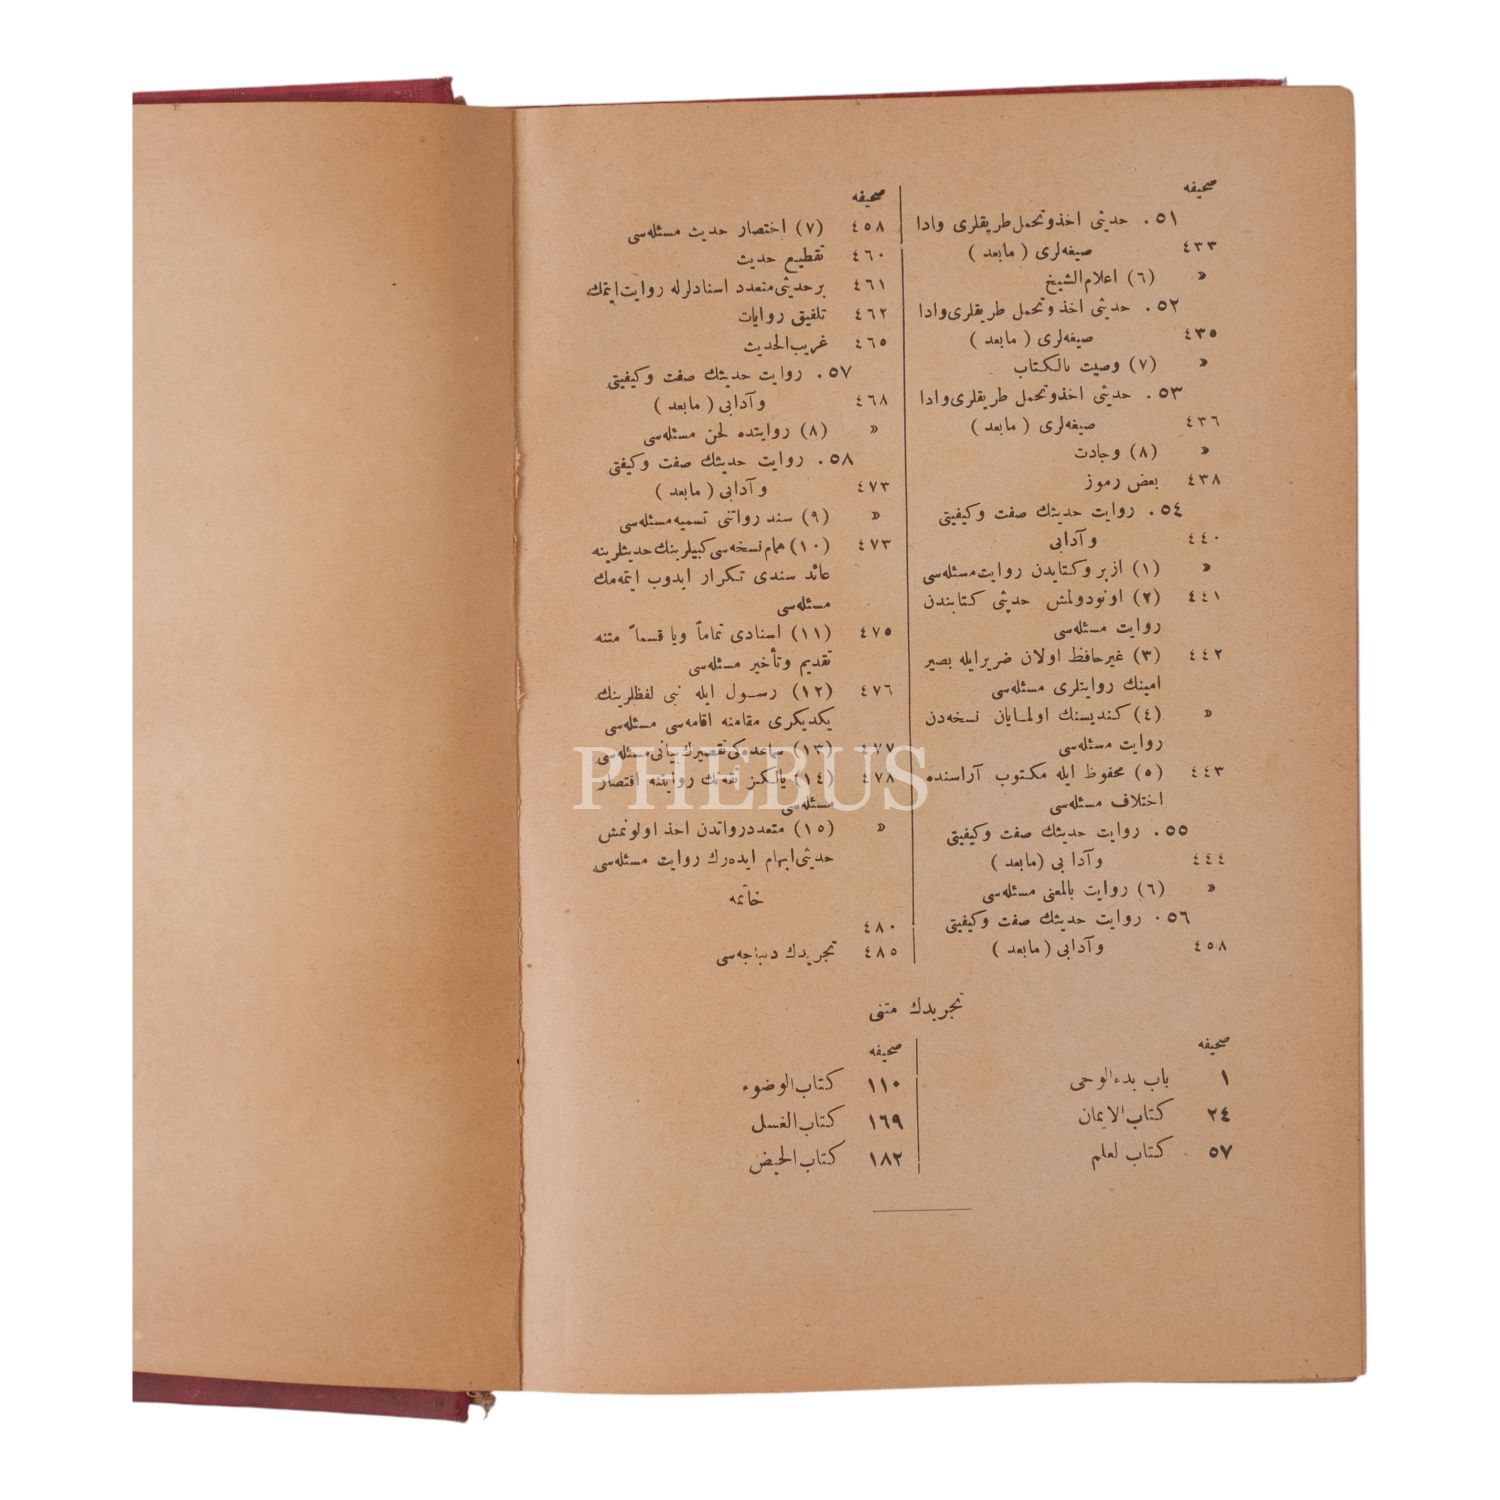 صحيفه
٥١. حديثى اخذ و تحمل طريقلرى وادا
٤٣٣ صيغه‌لرى ( مابعد )
» (٦) اعلام الشيخ
٥٢. حديثى اخذ و تحمل طريقلرى وادا
٤٣٥ صيغه‌لرى ( مابعد )
» (٧) وصيت بالكتاب
٥٣. حديثى اخذ و تحمل طريقلرى وادا
٤٣٦ صيغه‌لرى ( مابعد )
» (٨) وجادت
٤٣٨ بعض رموز
٥٤. روايت حديثك صفت و كيفيتى
٤٤٠ و آدابى
» (١) ازبر و كتابدن روايت مسئله‌سى
٤٤١ (٢) اونودولمش حديثى كتابندن
روايت مسئله‌سى
٤٤٢ (٣) غير حافظ اولان ضرير ايله بصير
امينك روايتلرى مسئله‌سى
» (٤) كنديسنك اولمايان نسخه‌دن
روايت مسئله‌سى
٤٤٣ (٥) محفوظ ايله مكتوب آراسنده
اختلاف مسئله‌سى
٥٥. روايت حديثك صفت و كيفيتى
٤٤٤ و آدابى (مابعد )
» (٦) روايت بالمعنى مسئله‌سى
٥٦. روايت حديثك صفت و كيفيتى
٤٥٨ و آدابى ( مابعد )
صحيفه
٤٥٨ (٧) اختصار حديث مسئله‌سى
٤٦٠ تقطيع حديث
٤٦١ بر حديثى متعدد اسنادلرله روايت ايتمك
٤٦٢ تلفيق روايات
٤٦٥ غريب الحديث
٥٧. روايت حديثك صفت و كيفيتى
٤٦٨ و آدابى ( مابعد )
» (٨) روايتده لحن مسئله‌سى
٥٨. روايت حديثك صفت و كيفتى
٤٧٣ و آدابى ( مابعد )
» (٩) سند رواتنى تسميه مسئله‌سى
٤٧٣ (١٠) همام نسخه‌سى كبيلرينك حديثلرينه
عائد سندى تكرار ايدوب ايتمه‌مك
مسئله‌سى
٤٧٥ (١١) اسنادى تماماً ويا قسماً متنه
تقديم و تأخير مسئله‌سى
٤٧٦ (١٢) رسول ايله نبى لفظلرينك
يكديكرى مقامنه اقامه‌سى مسئله‌سى
٤٧٧ (١٣) سماعده‌كى تقصيرك بيانى مسئله‌سى
٤٧٨ (١٤) يالكز ثقه‌نك روايتنه اقتصار
مسئله‌سى
» (١٥) متعدد رواتدن اخذ اولونمش
حديثى ابهام ايده‌رك روايت مسئله‌سى
خاتمه
٤٨٠
٤٨٥ تجريدك ديباجه‌سى
PHEBUS
تجريدك متنى
صحيفه
١ باب بدء الوحى
٢٤ كتاب الايمان
٥٧ كتاب لعلم
صحيفه
١١٠ كتاب الوضوء
١٦٩ كتاب الغسل
١٨٢ كتاب الحيض